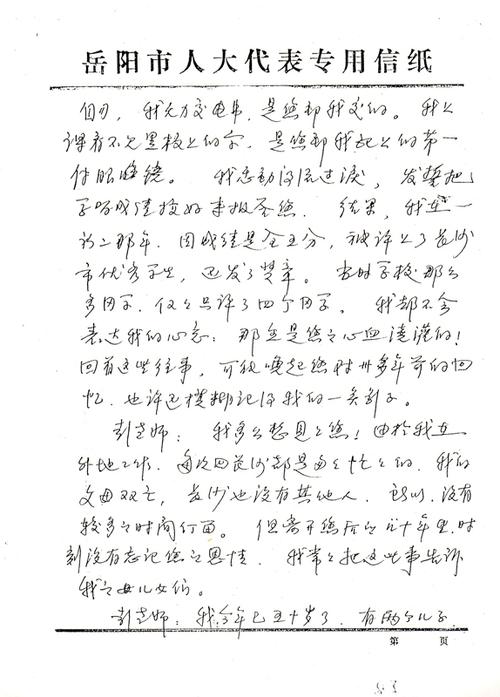 岳阳市人大代表专用信纸
我无力交电费，是您帮我交的。我上
课看不见黑板上的字，是您帮我配上的第一
付眼镜。我感动得流过泪，发誓把
学习成绩搞好来报答您。结果，我在
初二那年，因成绩是全五分，被评上了长沙
市优秀学生，还发了奖章。当时学校那么
多同学，仅仅只评了四个同学。我却不会
表达我的心意：那全是您之心血浇灌的！
回首这些往事，可能唤起您对卅多年前的回
忆，也许已模糊记得我的一矣影子。
彭老师：我多么想见见您！由於我在
外地工作，每次回长沙都是匆匆忙忙的，我的
父母双亡，长沙也没有其他人，所以，没有
较多之时间停留。但离开您后之几十年里，时
刻没有忘记您之恩情，我常常把这些事告诉
我之女儿女们。
彭老师：我今年已五十岁了，有两个儿子
第 页